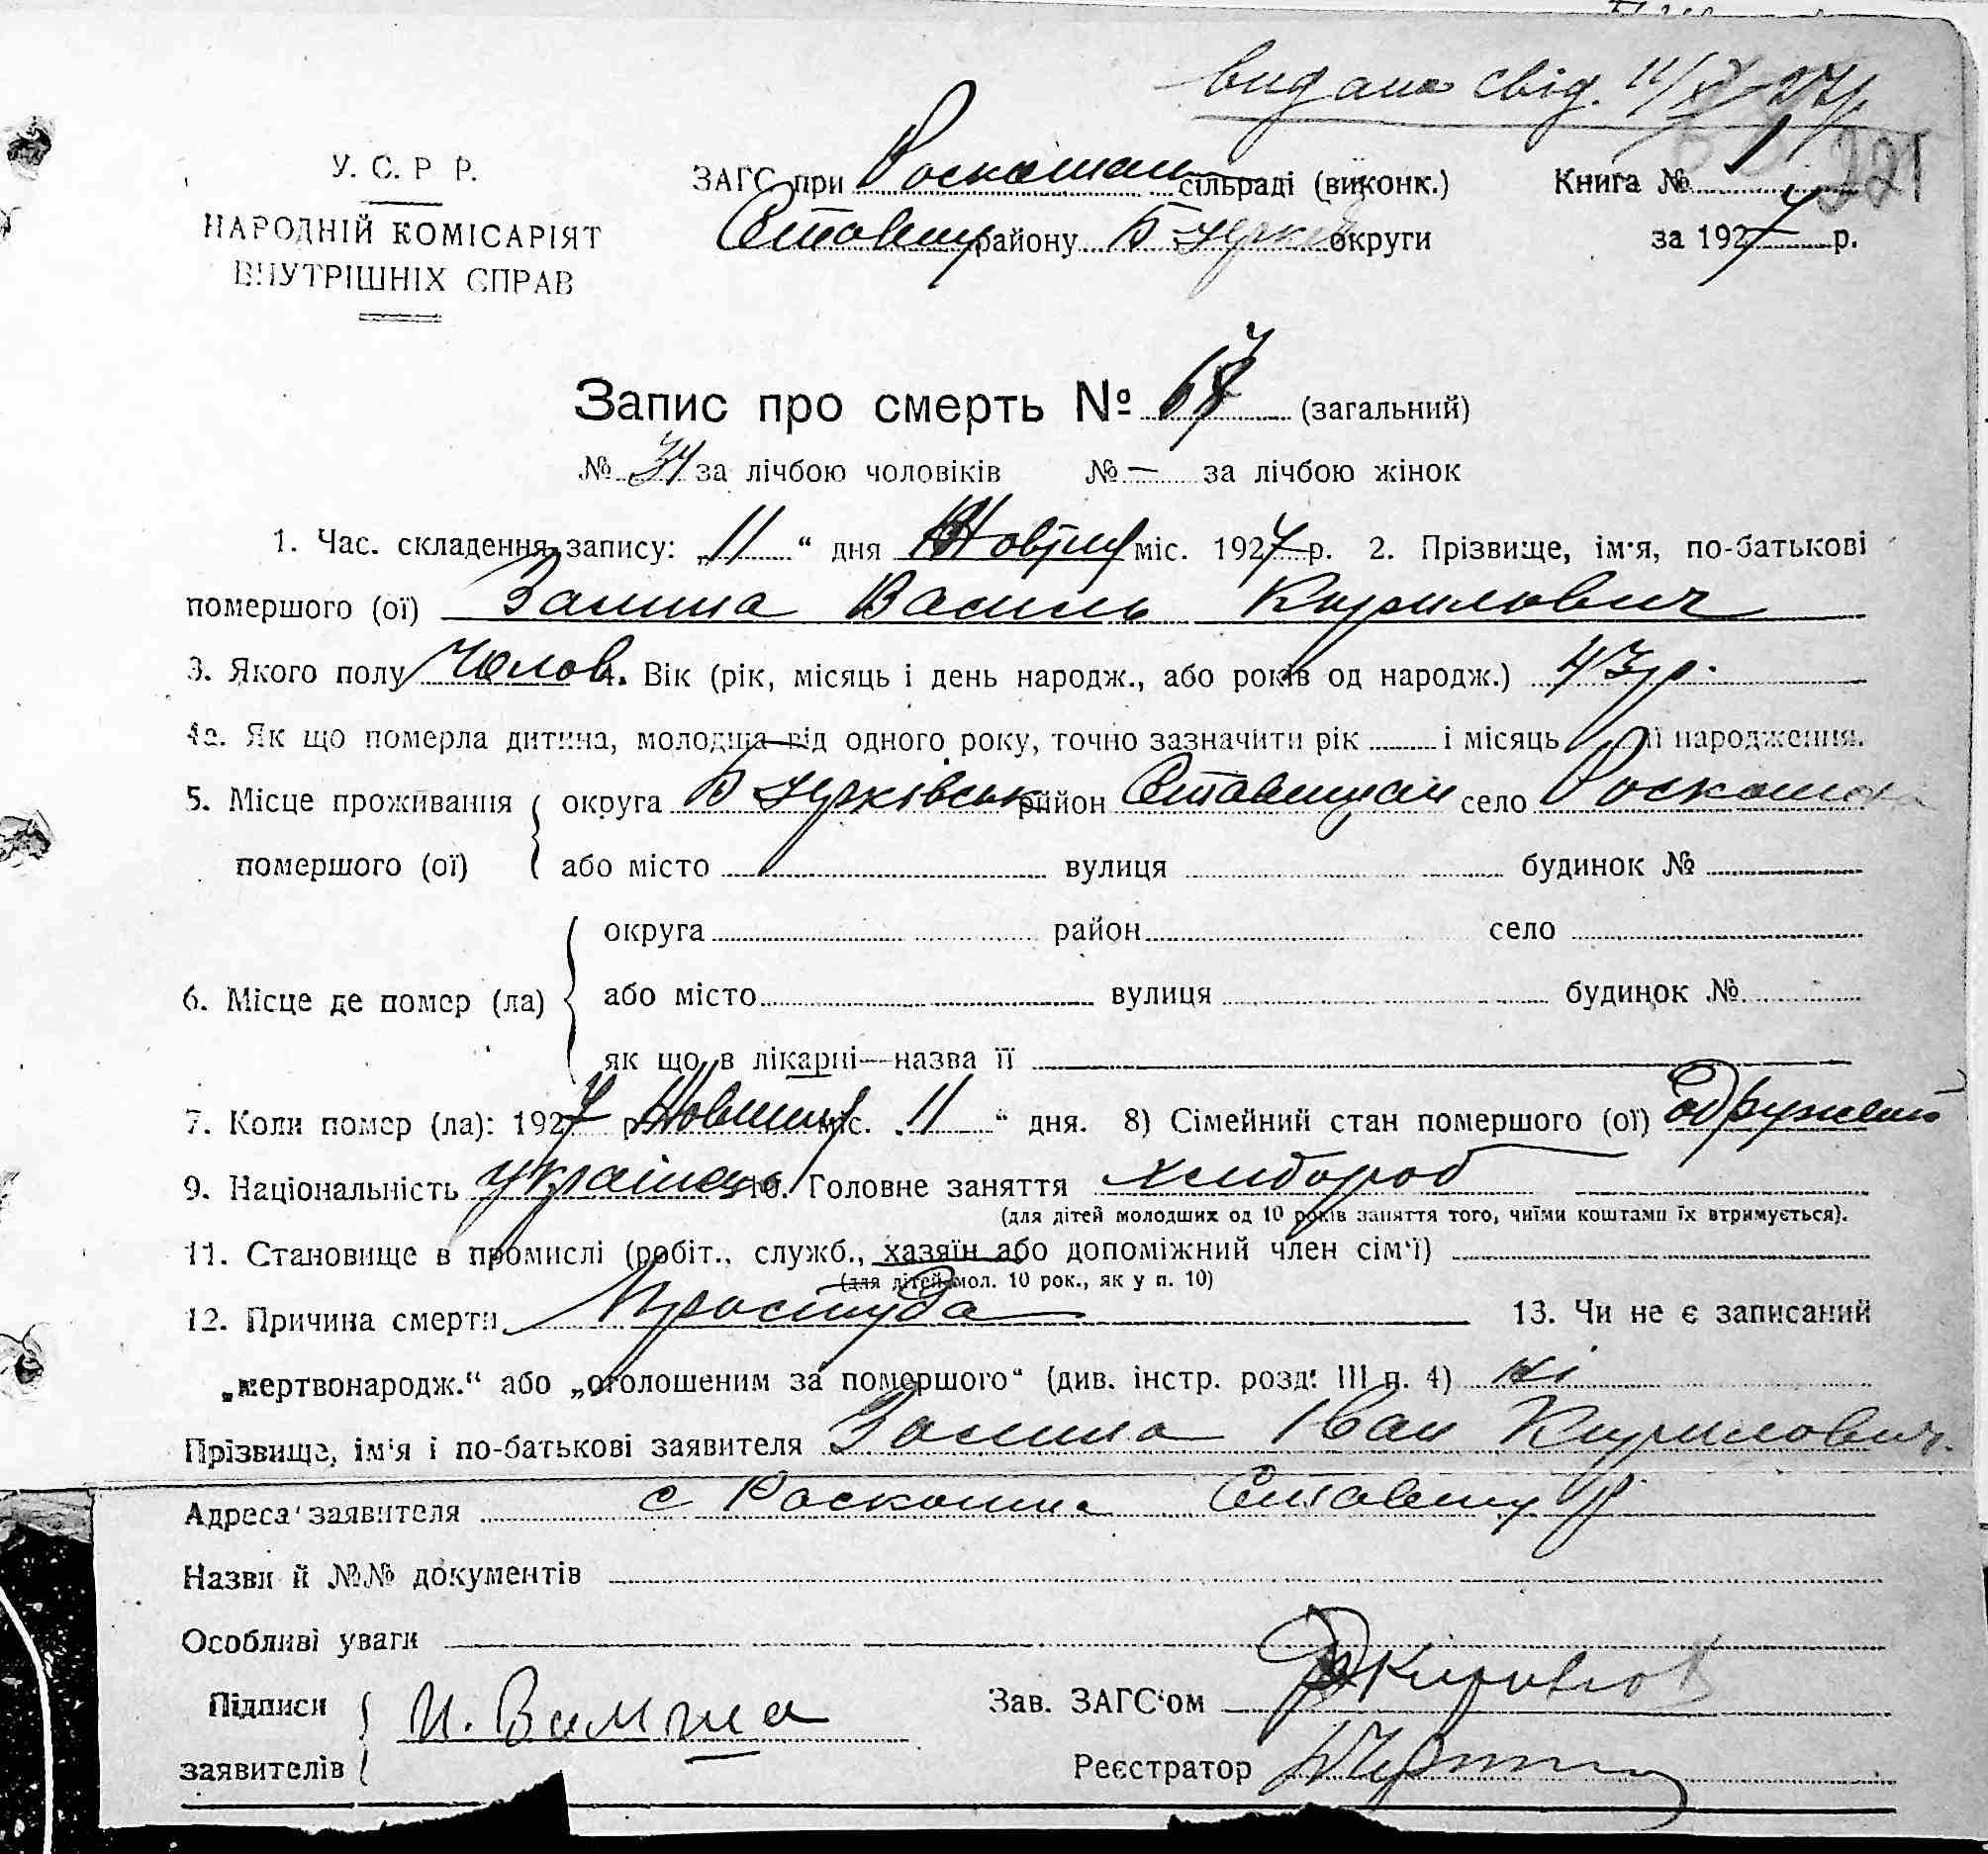 видано свід. 11/X 27р.
У. С. Р Р.
ЗАГС при Роскошан сільраді (виконк.) Книга № 1 221
НАРОДНІЙ КОМІСАРІЯТ
Ставищ району Б Церків округи за 1927 р.
ВНУТРІШНІХ СПРАВ
Запис про смерть № 67 (загальний)
№ 34 за лічбою чоловіків № — за лічбою жінок
1. Час. складення запису: „11“ дня міс. 1927 р. 2. Прізвище, ім'я, по-батькові
помершого (ої) Василь Кирилович
3. Якого полу Чолов. Вік (рік, місяць і день народж., або років од народж.) 43 р.
4а. Як що померла дитина, молодща від одного року, точно зазначити рік і місяць її народження.
5. Місце проживання округа Б Церківськ район Ставищан село Роскошна
помершого (ої) або місто вулиця будинок №
округа район село
6. Місце де помер (ла) або місто вулиця будинок №
як що в лікарні—назва її
7. Коли помер (ла): 1927 р. міс. „11“ дня. 8) Сімейний стан помершого (ої) одружений
9. Національність українець 10. Головне заняття хлибороб
(для дітей молодших од 10 років заняття того, чиїми коштами їх втримується).
11. Становище в промислі (робіт., служб., хазяїн або допоміжний член сім'ї)
(для дітей мол. 10 рок., як у п. 10)
12. Причина смерти Простуда 13. Чи не є записаний
„мертвонародж.“ або „оголошеним за помершого“ (див. інстр. розд. III п. 4) ні
Прізвище, ім'я і по-батькові заявителя Іван Кирилович
Адреса заявителя с Роскошна Ставищ р
Назви й №№ документів
Особливі уваги
Підписи И. Зав. ЗАГС'ом
заявителів Реєстратор